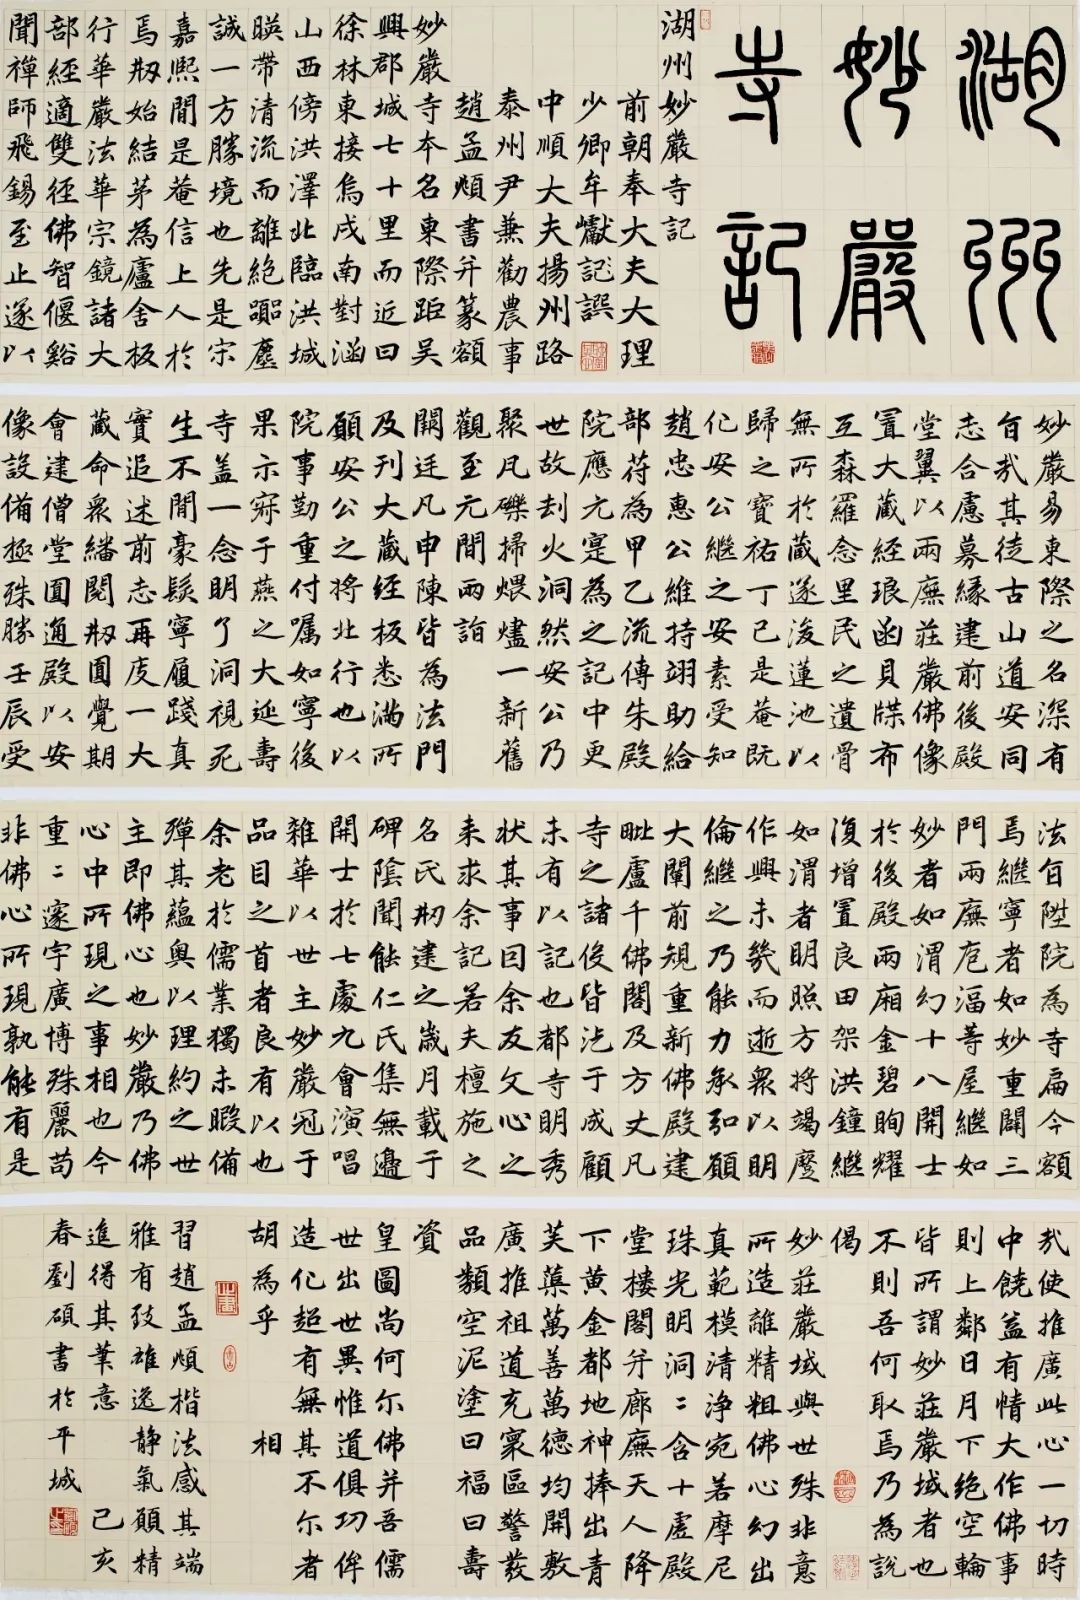 湖州
妙嚴
寺記
湖州妙嚴寺記
前朝奉大夫大理
少卿牟巘記譔
中順大夫揚州路
泰州尹兼勸農事
趙孟頫書并篆額
妙嚴寺本名東際距吳
興郡城七十里而近曰
徐林東接烏戍南對涵
山西傍洪澤北臨洪城
暎帶清流而離絕囂塵
誠一方勝境也先是宗
嘉熙間是菴信上人於
焉剏始結茅為廬舍板
行華嚴法華宗鏡諸大
部經適雙徑佛智偃谿
聞禪師飛錫至止遂以
妙嚴易東際之名深有
旨哉其徒古山道安同
志合慮募緣建前後殿
堂翼以兩廡莊嚴佛像
置大藏經琅函貝牒布
互森羅念里民之遺骨
無所於藏遂浚蓮池以
歸之寶祐丁巳是菴既
化安公繼之安素受知
趙忠惠公維持翊助給
部苻為甲乙流傳朱殿
院應元寔為之記中更
世故刧火洞然安公乃
聚凡礫掃煨燼一新舊
觀至元間兩詣
闕廷凡申陳皆為法門
及刊大藏經板悉滿所
願安公之將北行也以
院事勤重付囑如寧後
果示寂于燕之大延壽
寺盖一念明了洞視死
生不間豪髮寧履踐真
實追述前志再度一大
藏命衆繙閱剏圓覺期
會建僧堂圓通殿以安
像設備極殊勝壬辰受
法旨陞院為寺扁今額
焉繼寧者如妙重闢三
門兩廡庖湢等屋繼如
妙者如渭幻十八開士
於後殿兩廂金碧眴耀
復增置良田架洪鐘繼
如渭者明照方將竭麼
作興未幾而逝衆以明
倫繼之乃能力承弘願
大闡前規重新佛殿建
毗盧千佛閣及方丈凡
寺之諸役皆汔于成顧
未有以記也都寺明秀
狀其事曰余友文心之
来求余記若夫檀施之
名氏剏建之歲月載于
碑陰聞能仁氏集無邊
開士於七處九會演唱
雜華以世主妙嚴冠于
品目之首者良有以也
余老於儒業獨未暇備
殫其蘊奧以理約之世
主即佛心也妙嚴乃佛
心中所現之事相也今
重〻邃宇廣博殊麗苟
非佛心所現孰能有是
哉使推廣此心一切時
中饒益有情大作佛事
則上鄰日月下絕空輪
皆所謂妙莊嚴域者也
不則吾何取焉乃為說
偈
妙莊嚴域與世殊非意
所造離精粗佛心幻出
真範模清浄宛若摩尼
珠光明洞〻含十虛殿
堂樓閣并廊廡天人降
下黄金都地神捧出青
芙蕖萬善萬德均開敷
廣推祖道充寰區警發
品類空泥塗曰福曰壽
資
皇圖尚何尒佛并吾儒
世出世異惟道俱功侔
造化超有無其不尒者
胡為乎 相
習趙孟頫楷法感其端
雅有致雄逸静氣願精
進得其筆意 己亥
春劉碩書於平城